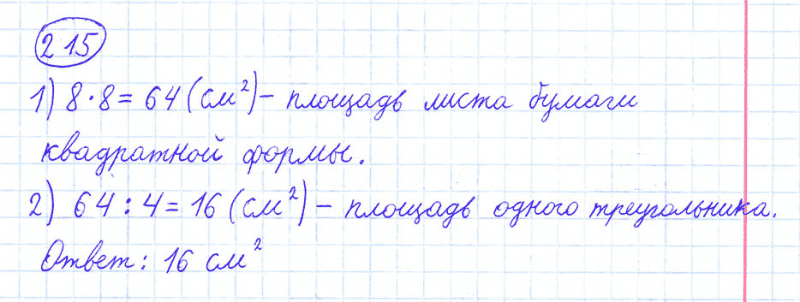 215
1) 8·8=64(см²)– площадь листа бумаги
квадратной формы.
2) 64:4=16(см²)– площадь одного треугольника.
Ответ: 16 см²